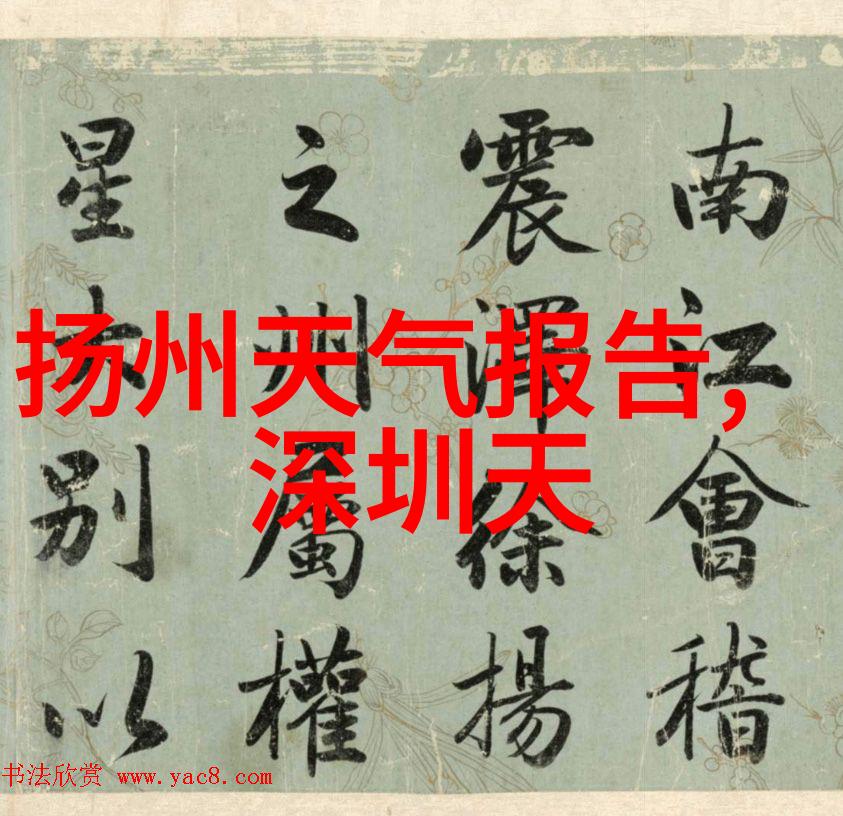 南江會稽
震澤徐揚
之州屬權
星别以
扬州天气报告,
深圳天
书法欣赏 www.yac8.com